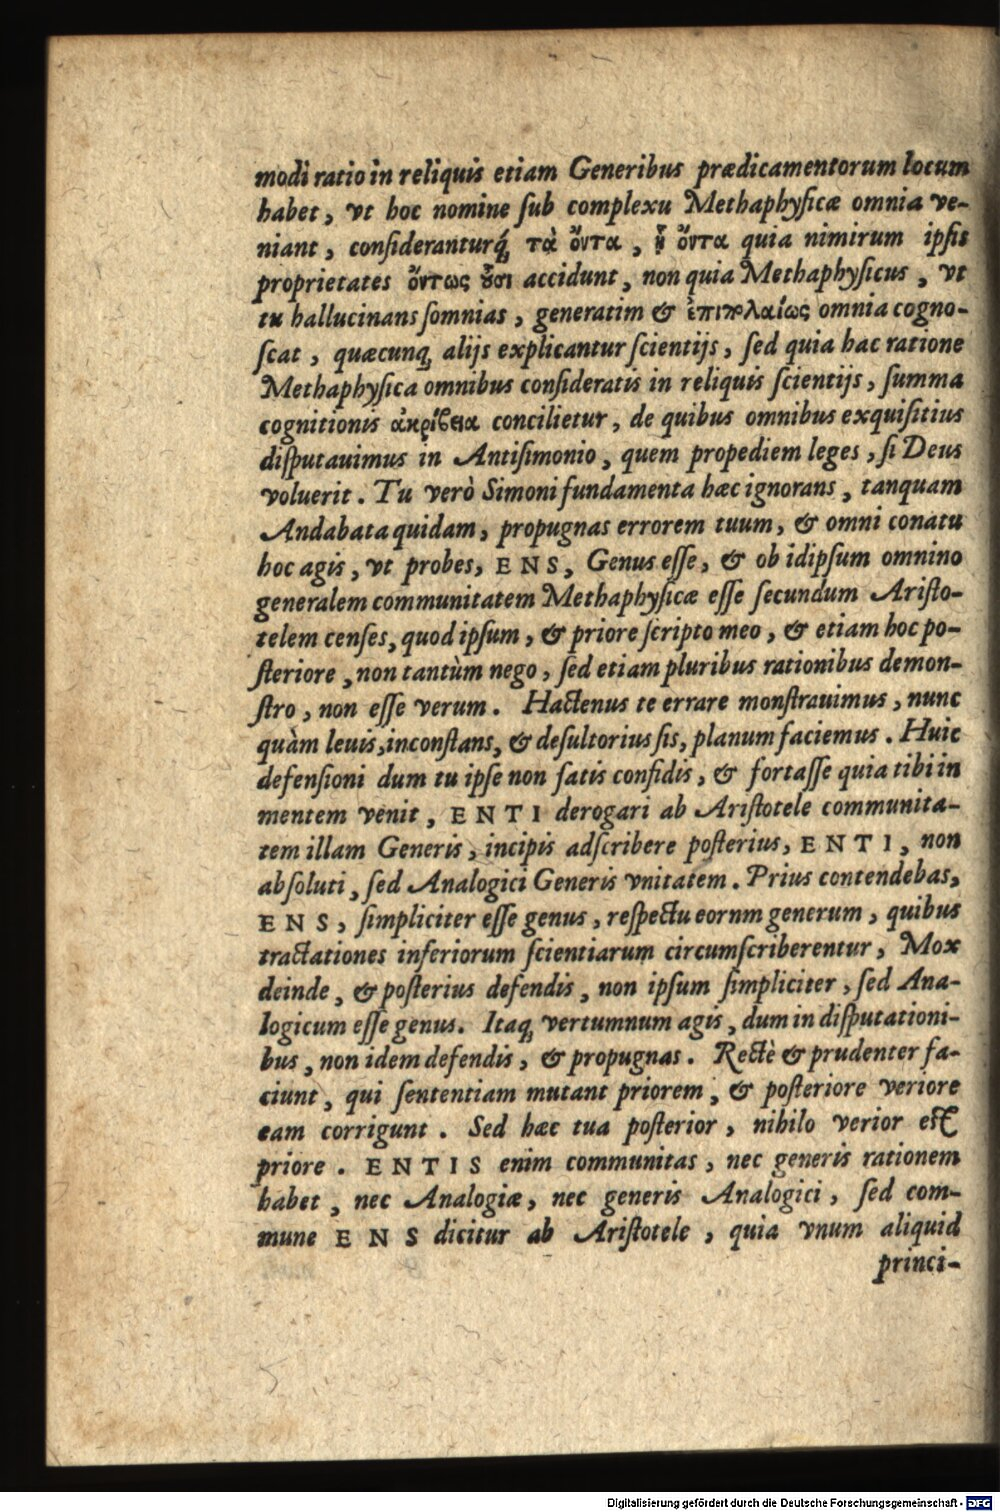 modi ratio in reliquis etiam Generibus prædicamentorum locum
habet, vt hoc nomine ſub complexu Methaphyſicæ omnia ve-
niant, conſideranturq́; τὰ ὄντα, ᾗ ὄντα quia nimirum ipſis
proprietates ὄντως οὖσι accidunt, non quia Methaphyſicus, vt
tu hallucinans ſomnias, generatim & ἐπιπολαίως omnia cogno-
ſcat, quæcunq; alijs explicantur ſcientijs, ſed quia hac ratione
Methaphyſica omnibus conſideratis in reliquis ſcientijs, ſumma
cognitionis ἀκρίβεια concilietur, de quibus omnibus exquiſitius
diſputauimus in Antiſimonio, quem propediem leges, ſi Deus
voluerit. Tu verò Simoni fundamenta hæc ignorans, tanquam
Andabata quidam, propugnas errorem tuum, & omni conatu
hoc agis, vt probes, ENS, Genus eſſe, & ob id ipſum omnino
generalem communitatem Methaphyſicæ eſſe ſecundum Ariſto-
telem cenſes, quod ipſum, & priore ſcripto meo, & etiam hoc po-
ſteriore, non tantùm nego, ſed etiam pluribus rationibus demon-
ſtro, non eſſe verum. Hactenus te errare monſtrauimus, nunc
quàm leuis, inconſtans, & deſultorius ſis, planum faciemus. Huic
defenſioni dum tu ipſe non ſatis confidis, & fortaſſe quia tibi in
mentem venit, ENTI derogari ab Ariſtotele communita-
tem illam Generis, incipis adſcribere poſterius, ENTI, non
abſoluti, ſed Analogici Generis vnitatem. Prius contendebas,
ENS, ſimpliciter eſſe genus, reſpectu eornm generum, quibus
tractationes inferiorum ſcientiarum circumſcriberentur, Mox
deinde, & poſterius defendis, non ipſum ſimpliciter, ſed Ana-
logicum eſſe genus. Itaq; vertumnum agis, dum in diſputationi-
bus, non idem defendis, & propugnas. Rectè & prudenter fa-
ciunt, qui ſententiam mutant priorem, & poſteriore veriore
eam corrigunt. Sed hæc tua poſterior, nihilo verior eſt
priore. ENTIS enim communitas, nec generis rationem
habet, nec Analogiæ, nec generis Analogici, ſed com-
mune ENS dicitur ab Ariſtotele, quia vnum aliquid
princi-
Digitalisierung gefördert durch die Deutsche Forschungsgemeinschaft - DFG